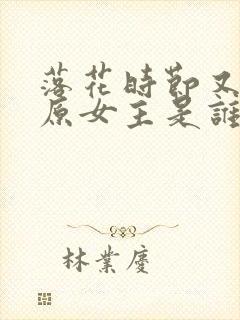 落花時節又
原女主是誰
林業慶